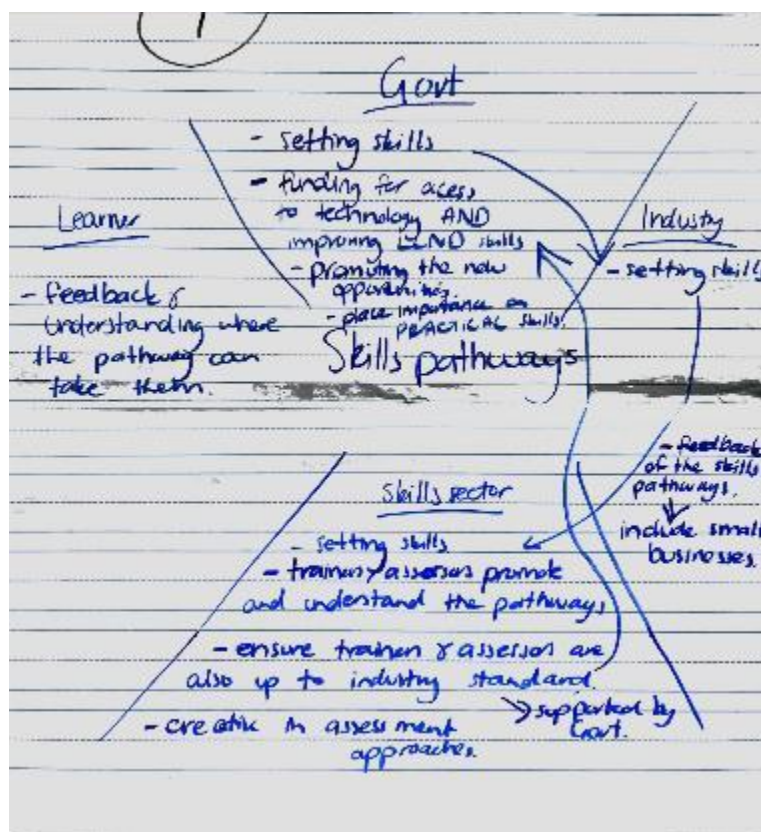 1
Govt
- setting skills
- funding for acess
to technology AND
improving LLND skills
- promoting the new
opportunities
- place importance on
PRACTICAL skills.
Learner
- feedback &
understanding where
the pathway can
take them.
Industry
- setting skills
Skills pathways
- feedback
of the skills
pathways.
include small
businesses.
Skills sector
- setting skills
- trainers/assessors promote
and understand the pathways
- ensure trainers & assessors are
also up to industry standard.
supported by
Govt.
- creative in assessment
approaches.